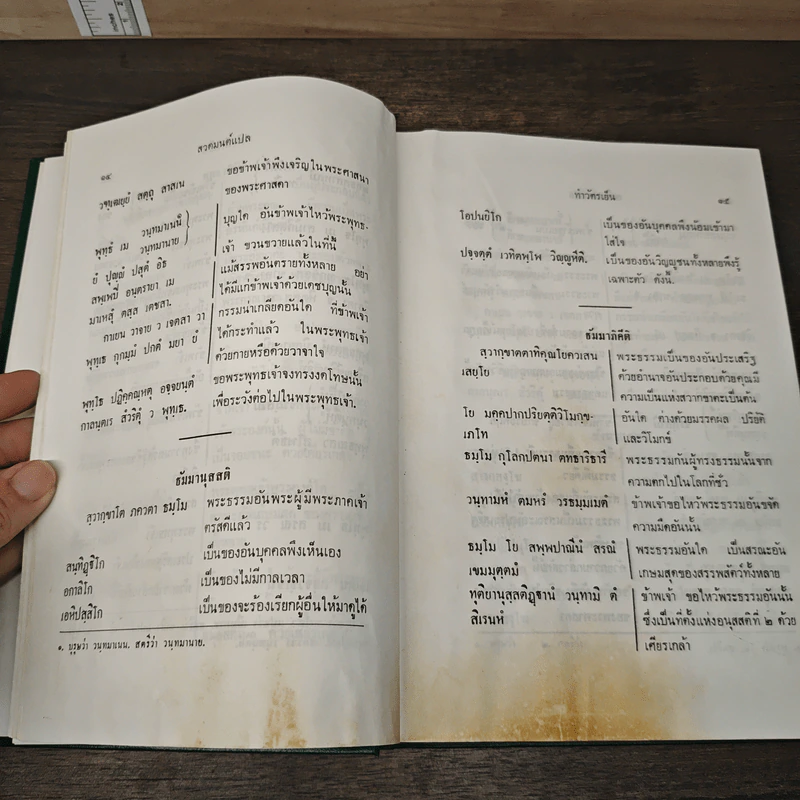 สวดมนต์แปล
๑๔
วฑฺเฒยฺยํ สตฺถุ สาสเน
ขอข้าพเจ้าพึงเจริญในพระศาสนา
ของพระศาสดา
พุทฺธํ เม วนฺทมาเนนี
วนฺทมานาย
ยํ ปุญฺญํ ปสุตํ อิธ
สพฺเพปิ อนฺตรายา เม
มาเหสุํ ตสฺส เตชสา.
บุญใด อันข้าพเจ้าไหว้พระพุทธ-
เจ้า ขวนขวายแล้วในที่นี้
แม้สรรพอันตรายทั้งหลาย อย่า
ได้มีแก่ข้าพเจ้าด้วยเดชบุญนั้น
กาเยน วาจาย ว เจตสา วา
พุทฺเธ กุกมฺมํ ปกตํ มยา ยํ
กรรมน่าเกลียดอันใด ที่ข้าพเจ้า
ได้กระทำแล้ว ในพระพุทธเจ้า
ด้วยกายหรือด้วยวาจาใจ
พุทฺโธ ปฏิคฺคณฺหตุ อจฺจยนฺตํ
กาลนฺตเร สํวริตุํ ว พุทฺเธ.
ขอพระพุทธเจ้าจงทรงงดโทษนั้น
เพื่อระวังต่อไปในพระพุทธเจ้า.
ธัมมานุสสติ
สฺวากฺขาโต ภควตา ธมฺโม
พระธรรมอันพระผู้มีพระภาคเจ้า
ตรัสดีแล้ว
สนฺทิฏฺฐิโก
เป็นของอันบุคคลพึงเห็นเอง
อกาลิโก
เป็นของไม่มีกาลเวลา
เอหิปสฺสิโก
เป็นของจะร้องเรียกผู้อื่นให้มาดูได้
๑. บุรุษว่า วนฺทมาเนน. สตรีว่า วนฺทมานาย.
ทำวัตรเย็น
๑๕
โอปนยิโก
เป็นของอันบุคคลพึงน้อมเข้ามา
ใส่ใจ
ปจฺจตฺตํ เวทิตพฺโพ วิญฺญูหีติ.
เป็นของอันวิญญูชนทั้งหลายพึงรู้
เฉพาะตัว ดังนี้.
ธัมมาภิคีติ
สฺวากฺขาตตาทิคุณโยควเสน
เสยฺโย
พระธรรมเป็นของอันประเสริฐ
ด้วยอำนาจอันประกอบด้วยคุณมี
ความเป็นแห่งสวากขาตะเป็นต้น
โย มคฺคปากปริยตฺติวิโมกฺข-
เภโท
อันใด ต่างด้วยมรรคผล ปริยัติ
และวิโมกข์
ธมฺโม กุโลกปตนา ตทธาริธารี
พระธรรมกันผู้ทรงธรรมนั้นจาก
ความตกไปในโลกที่ชั่ว
วนฺทามหํ ตมหรํ วรธมฺมเมตํ
ข้าพเจ้าขอไหว้พระธรรมอันขจัด
ความมืดอันนั้น
ธมฺโม โย สพฺพปาณีนํ สรณํ
เขมมุตฺตมํ
พระธรรมอันใด เป็นสรณะอัน
เกษมสุดของสรรพสัตว์ทั้งหลาย
ทุติยานุสฺสติฏฺฐานํ วนฺทามิ ตํ
สิเรนหํ
ข้าพเจ้า ขอไหว้พระธรรมอันนั้น
ซึ่งเป็นที่ตั้งแห่งอนุสสติที่ ๒ ด้วย
เศียรเกล้า